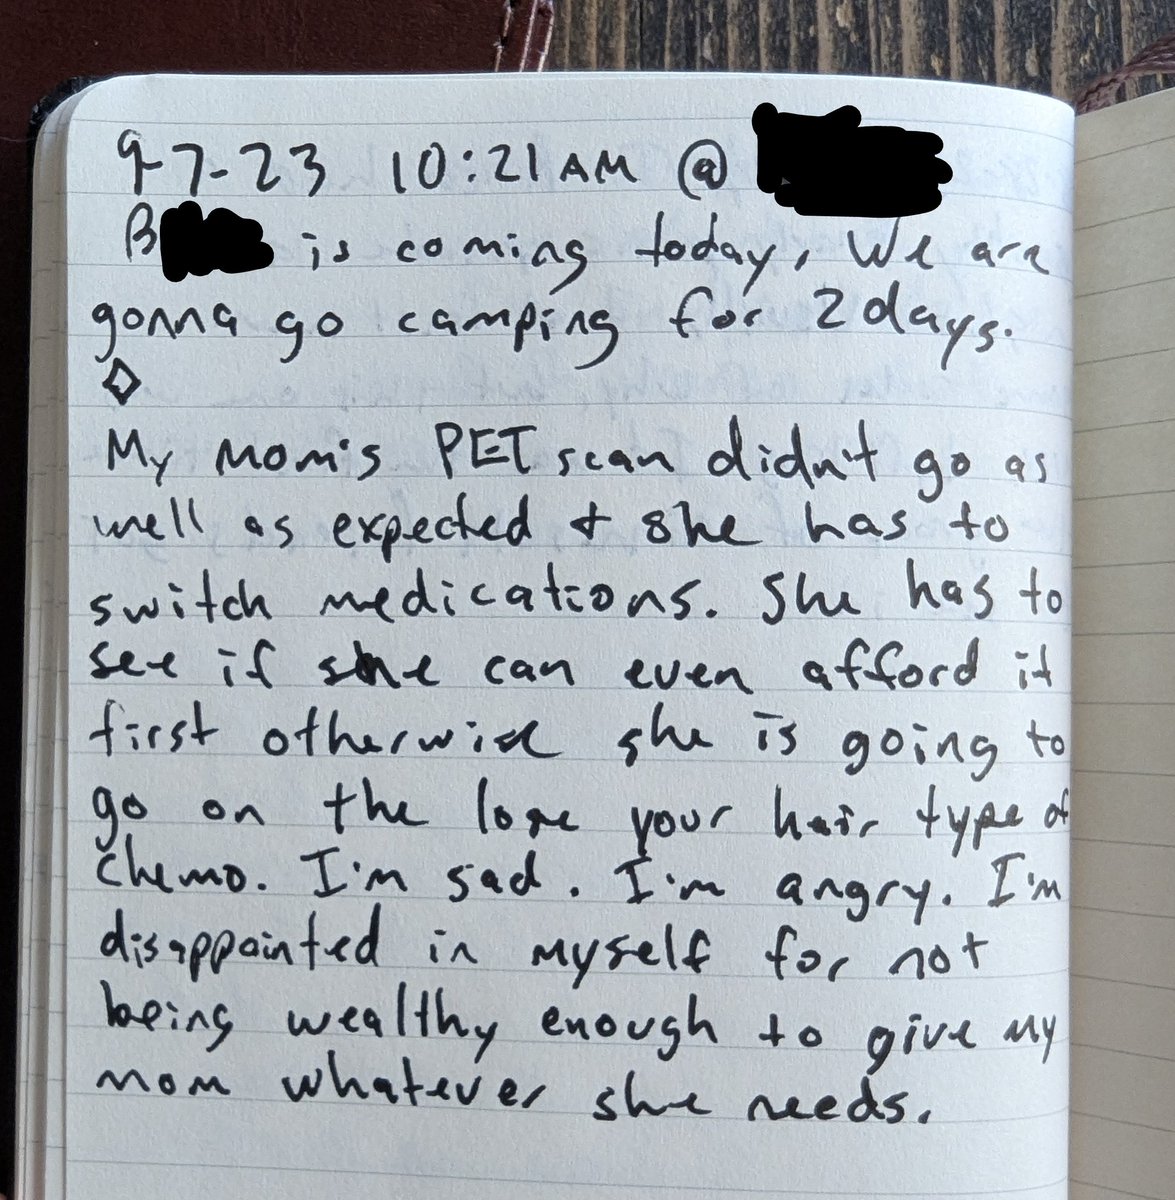 9-7-23 10:21AM @
B is coming today, We are
gonna go camping for 2 days.
My mom's PET scan didn't go as
well as expected + she has to
switch medications. She has to
see if she can even afford it
first otherwise she is going to
go on the lose your hair type of
chemo. I'm sad. I'm angry. I'm
disappointed in myself for not
being wealthy enough to give my
mom whatever she needs.